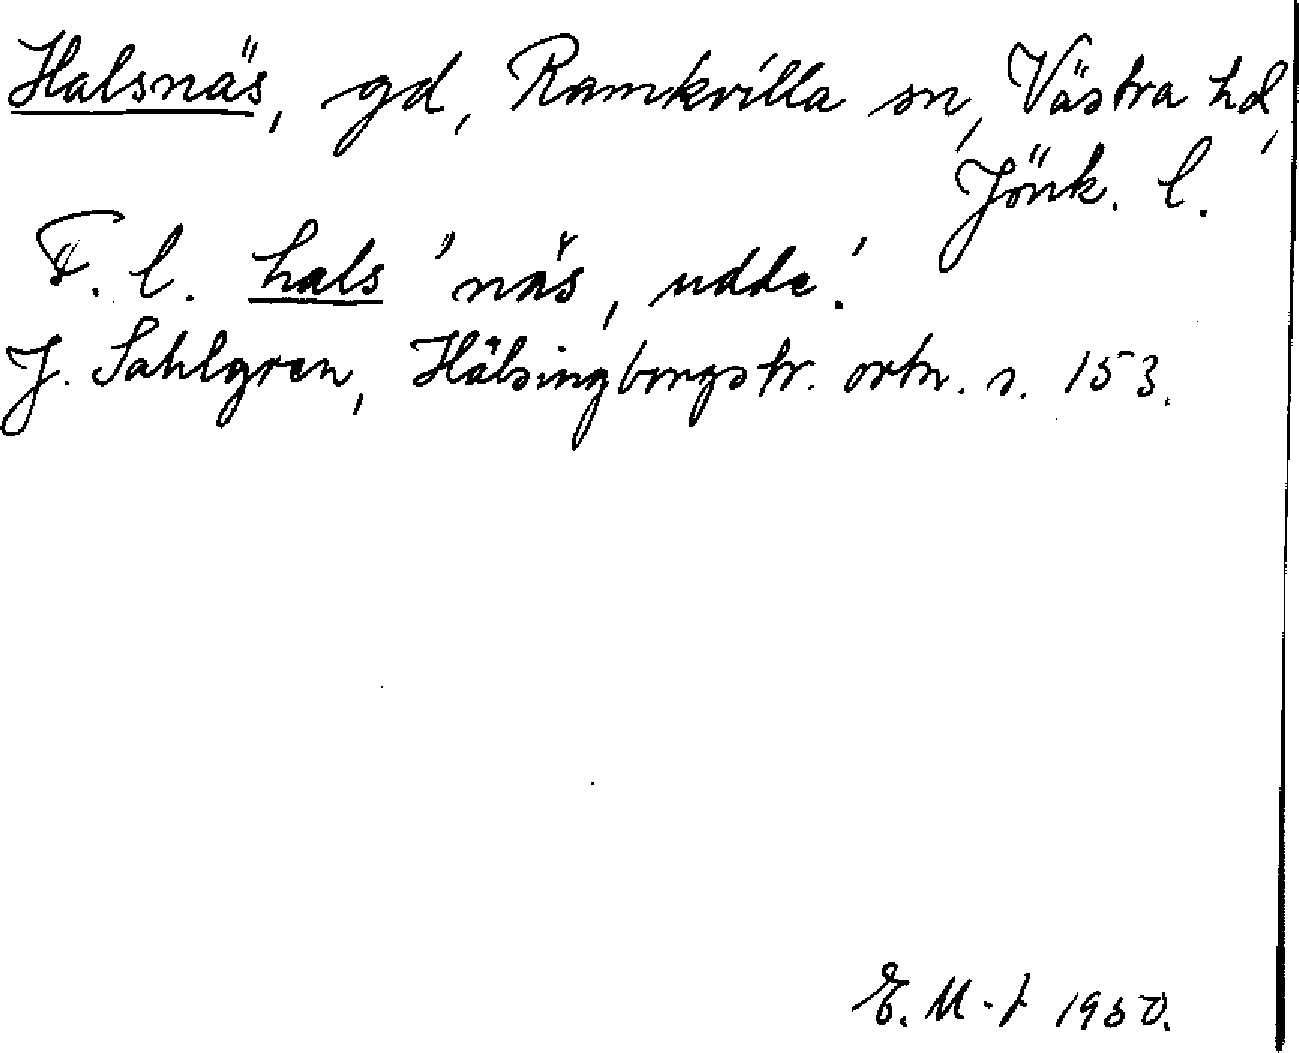 Halsnäs, gd, Ramkvilla sn, Västra hd,
Jönk. l.
F. l. hals 'näs, udde'.
J. Sahlgren, Hälsingborgstr. ortn. s. 153.
E. M-f 1950.